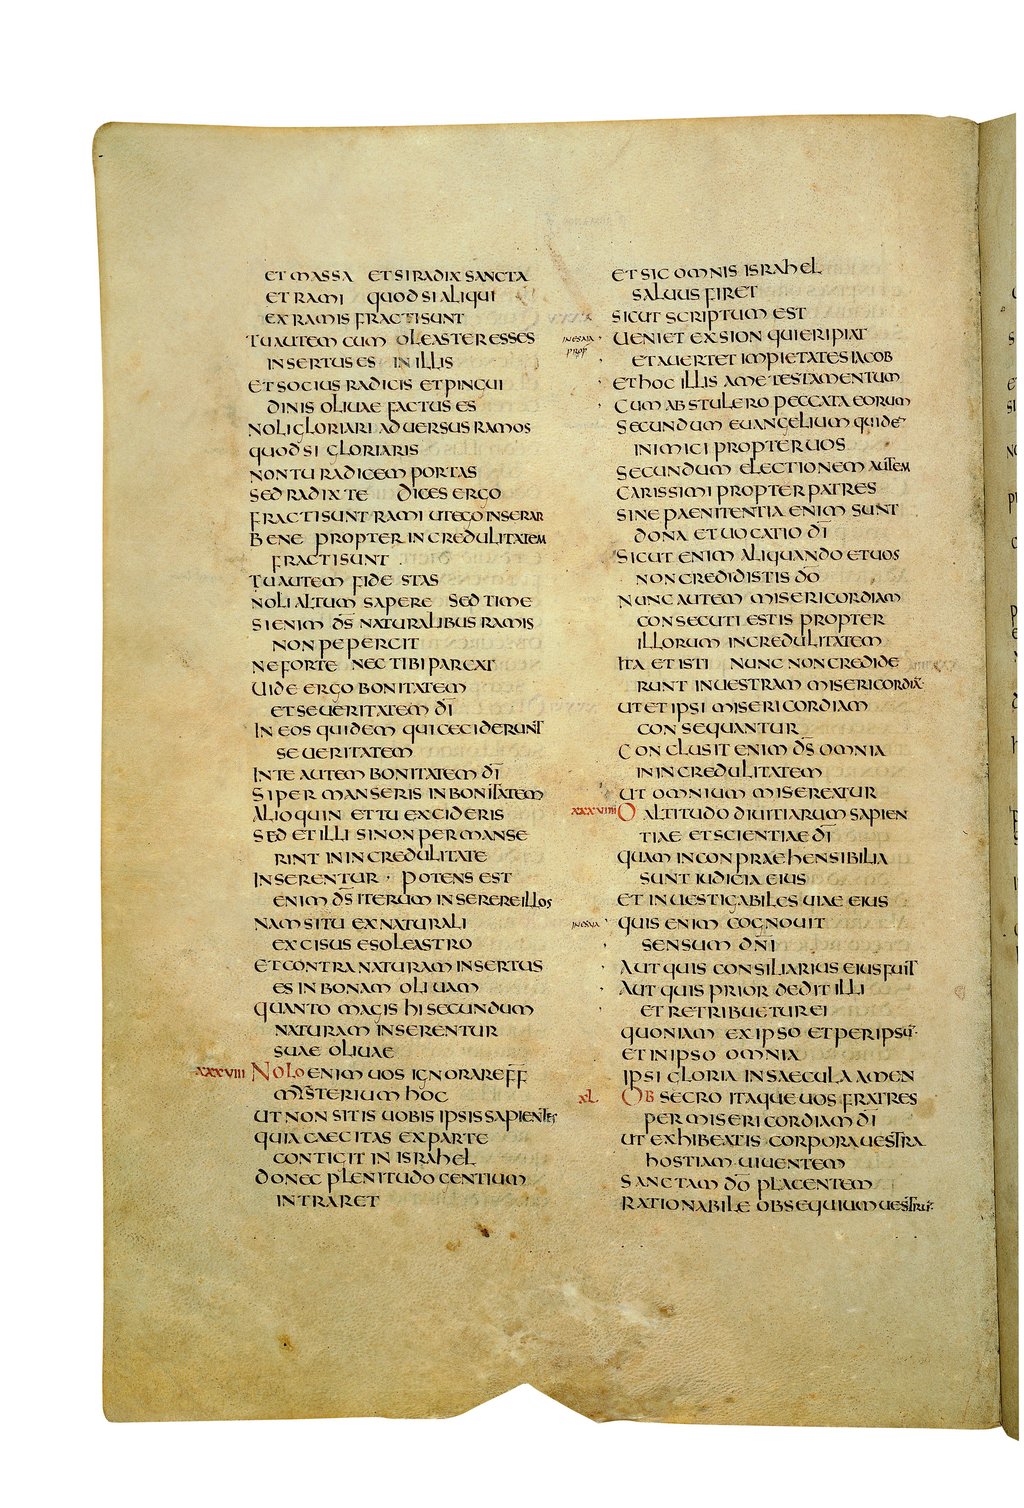 ET MASSA ET SI RADIX SANCTA
ET RAMI QUOD SI ALIQUI
EX RAMIS FRACTI SUNT
TU AUTEM CUM OLEASTER ESSES
INSERTUS ES IN ILLIS
ET SOCIUS RADICIS ET PINGUI
DINIS OLIUAE FACTUS ES
NOLI GLORIARI ADUERSUS RAMOS
QUOD SI GLORIARIS
NON TU RADICEM PORTAS
SED RADIX TE DICES ERGO
FRACTI SUNT RAMI UT EGO INSERAR
BENE PROPTER INCREDULITATEM
FRACTI SUNT
TU AUTEM FIDE STAS
NOLI ALTUM SAPERE SED TIME
SI ENIM D̅S̅ NATURALIBUS RAMIS
NON PEPERCIT
NE FORTE NEC TIBI PARCAT
UIDE ERGO BONITATEM
ET SEUERITATEM D̅I̅
IN EOS QUIDEM QUI CECIDERUNT
SEUERITATEM
IN TE AUTEM BONITATEM D̅I̅
SI PERMANSERIS IN BONITATEM
ALIOQUIN ET TU EXCIDERIS
SED ET ILLI SI NON PERMANSE
RINT IN INCREDULITATE
INSERENTUR · POTENS EST
ENIM D̅S̅ ITERUM INSERERE ILLOS
NAM SI TU EX NATURALI
EXCISUS ES OLEASTRO
ET CONTRA NATURAM INSERTUS
ES IN BONAM OLIUAM
QUANTO MAGIS HI SECUNDUM
NATURAM INSERENTUR
SUAE OLIUAE
XXXVIII NOLO ENIM UOS IGNORARE F̅F̅
MISTERIUM HOC
UT NON SITIS UOBIS IPSIS SAPIENTES
QUIA CAECITAS EX PARTE
CONTIGIT IN ISRAHEL
DONEC PLENITUDO GENTIUM
INTRARET
ET SIC OMNIS ISRAHEL
SALUUS FIRET
SICUT SCRIPTUM EST
IN ESAIA PROF · UENIET EX SION QUI ERIPIAT
ET AUERTET IMPIETATES IACOB
· ET HOC ILLIS A ME TESTAMENTUM
· CUM ABSTULERO PECCATA EORUM
SECUNDUM EUANGELIUM QUIDE̅
INIMICI PROPTER UOS
SECUNDUM ELECTIONEM AUTEM
CARISSIMI PROPTER PATRES
SINE PAENITENTIA ENIM SUNT
DONA ET UOCATIO D̅I̅
SICUT ENIM ALIQUANDO ET UOS
NON CREDIDISTIS D̅O̅
NUNC AUTEM MISERICORDIAM
CONSECUTI ESTIS PROPTER
ILLORUM INCREDULITATEM
ITA ET ISTI NUNC NON CREDIDE
RUNT IN UESTRAM MISERICORDIA̅
UT ET IPSI MISERICORDIAM
CONSEQUANTUR
CONCLUSIT ENIM D̅S̅ OMNIA
IN INCREDULITATEM
UT OMNIUM MISEREATUR
XXXVIIII O ALTITUDO DIUITIARUM SAPIEN
TIAE ET SCIENTIAE D̅I̅
QUAM INCONPRAEHENSIBILIA
SUNT IUDICIA EIUS
ET INUESTIGABILES UIAE EIUS
IN ESAIA · QUIS ENIM COGNOUIT
· SENSUM D̅N̅I̅
· AUT QUIS CONSILIARIUS EIUS FUIT
· AUT QUIS PRIOR DEDIT ILLI
· ET RETRIBUETUR EI
QUONIAM EX IPSO ET PER IPSU̅
ET IN IPSO OMNIA
IPSI GLORIA IN SAECULA AMEN
XL OBSECRO ITAQUE UOS FRATRES
PER MISERICORDIAM D̅I̅
UT EXHIBEATIS CORPORA UESTRA
HOSTIAM UIUENTEM
SANCTAM D̅O̅ PLACENTEM
RATIONABILE OBSEQUIUM UESTRU̅